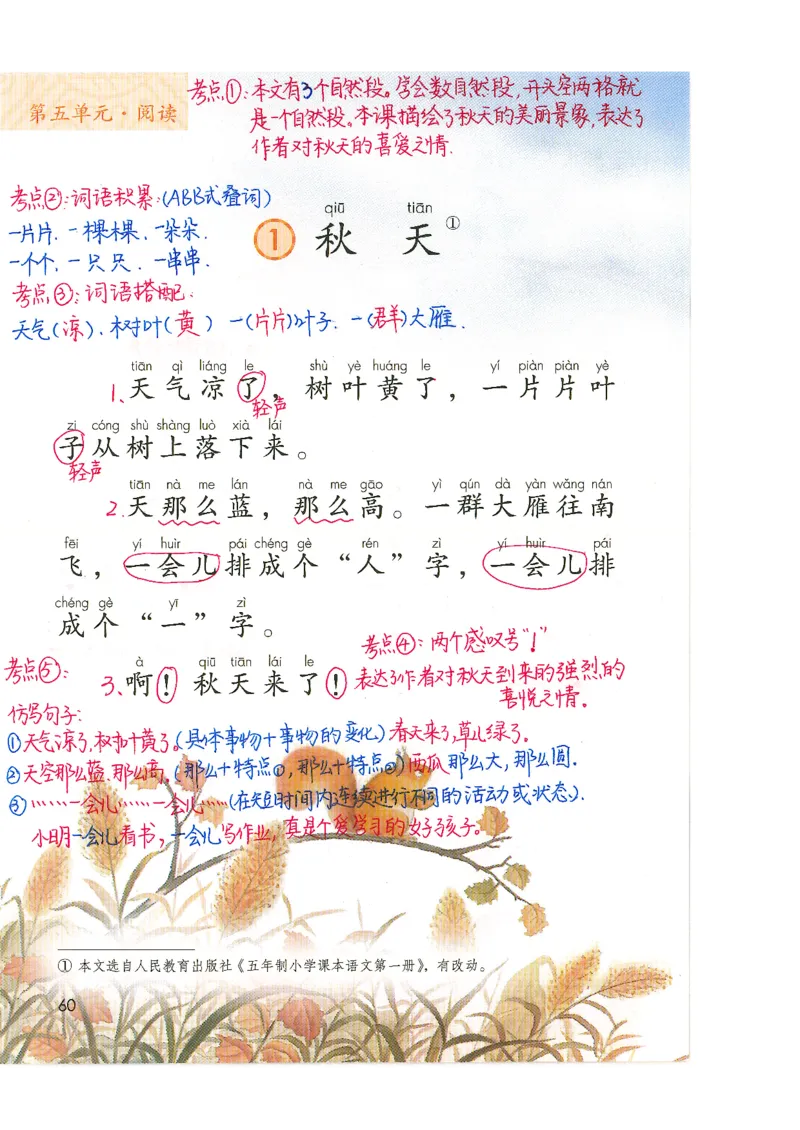 第五单元·阅读
考点①:本文有3个自然段。学会数自然段,开头空两格就
是一个自然段。本课描绘了秋天的美丽景象,表达了
作者对秋天的喜爱之情.
考点②:词语积累:(ABB式叠词)
一片片.一棵棵.一朵朵.
一个个.一只只.一串串.
qiū tiān
1 秋天①
考点③:词语搭配:
天气(凉).树叶(黄) 一(片片)叶子.一(群)大雁.
tiān qì liáng le shù yè huáng le yí piàn piàn yè
1、天气凉了,树叶黄了,一片片叶
轻声
zi cóng shù shàng luò xià lái
子从树上落下来。
轻声
tiān nà me lán nà me gāo yì qún dà yàn wǎng nán
2.天那么蓝,那么高。一群大雁往南
fēi yí huìr pái chéng gè rén zì yí huìr pái
飞,一会儿排成个“人”字,一会儿排
chéng gè yī zì
成个“一”字。
考点④:两个感叹号“!”
表达了作者对秋天到来的强烈的
喜悦之情.
à qiū tiān lái le
3、啊!秋天来了!
考点⑤:
仿写句子:
①天气凉了,树叶黄了。(具体事物+事物的变化)春天来了,草儿绿了.
②天空那么蓝.那么高.(那么+特点①,那么+特点②)西瓜那么大,那么圆.
③……一会儿……一会儿……(在短时间内连续进行不同的活动或状态).
小明一会儿看书,一会儿写作业,真是个爱学习的好孩子。
① 本文选自人民教育出版社《五年制小学课本语文第一册》,有改动。
60